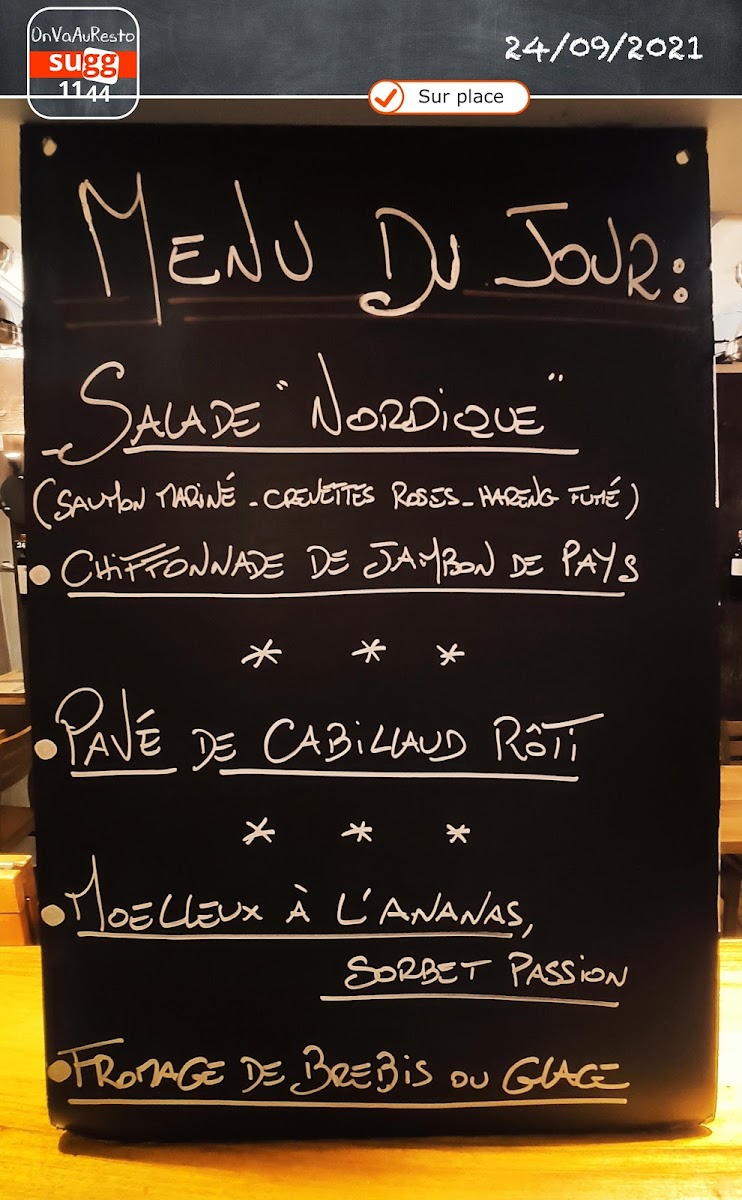 OnVaAuResto
sugg
1144
24/09/2021
Sur place
MENU DU JOUR:
- SALADE "NORDIQUE"
(SAUMON MARINÉ - CREVETTES ROSES - HARENG FUMÉ)
• CHIFFONNADE DE JAMBON DE PAYS
* * *
• PAVÉ DE CABILLAUD RÔTI
* * *
• MOELLEUX À L'ANANAS,
SORBET PASSION
• FROMAGE DE BREBIS OU GLACE